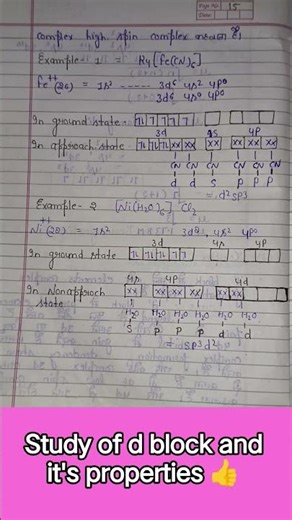 Page No. 15
Date
complex high spin complex बनाता है।
Example 1 = R4[Fe(CN)6]
Fe++(26) = 1s² ----- 3d6 4s² 4p0
3d6 4s0 4p0
In ground state -
3d 4s 4p
In approach state -
CN CN CN CN CN CN
d d S P P P
= d²sp3
Example - 2 [Ni(H2O)6] Cl2
Ni++(28) = 1s² 3d8, 4s² 4p0
3d 4s 4p
In ground state -
4s 4p 4d
In Nonapproch state -
XX XX XX XX XX XX
H2O H2O H2O H2O H2O H2O
S P P P d d
= sp3d²
Study of d block and
it's properties 👍